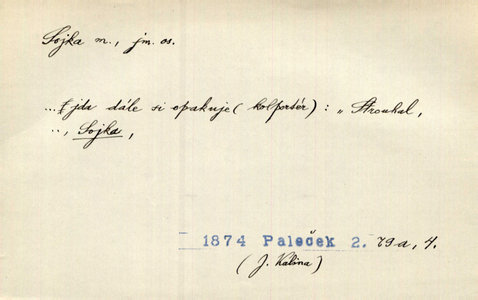 Sojka m., jm. os.
... jda dále si opakuje (kolportér): „Strouhal,
.., Sojka,
1874 Paleček 2. 79a, 4.
(J. Kalina)